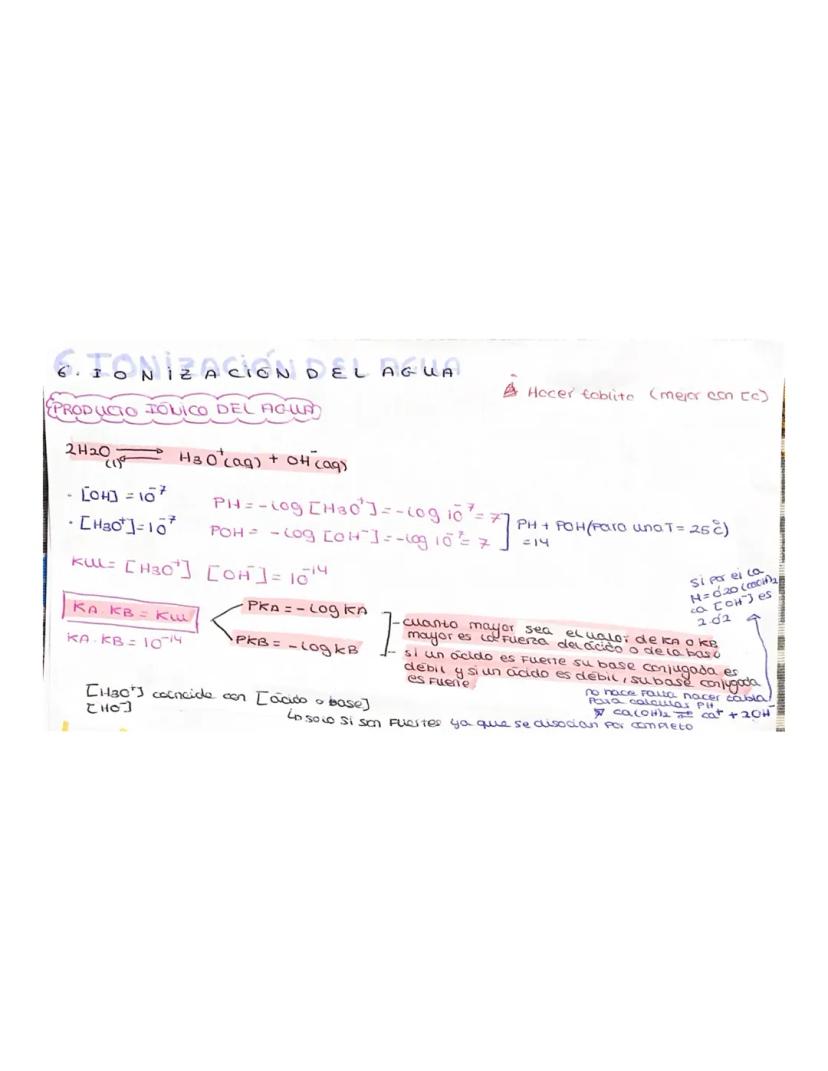 6. IONIZACIÓN DEL AGUA
6. IONIZACIÓN DEL AGUA
Hacer tablita (mejor con [c])
PRODUCTO IÓNICO DEL AGUA
2H2O (l) ⇌ H3O⁺(aq) + OH⁻(aq)
· [OH⁻] = 10⁻⁷
· [H3O⁺] = 10⁻⁷
PH = -log [H3O⁺] = -log 10⁻⁷ = 7
POH = -log [OH⁻] = -log 10⁻⁷ = 7
PH + POH (para una T = 25°C)
= 14
KW = [H3O⁺] [OH⁻] = 10⁻¹⁴
KA · KB = KW
KA · KB = 10⁻¹⁴
PKA = -log KA
PKB = -log KB
- cuanto mayor sea el valor de KA o KB
mayor es la fuerza del ácido o de la base
- si un ácido es fuerte su base conjugada es
débil y si un ácido es débil, su base conjugada
es fuerte
si por ej la
M = 0'20 (Ca(OH)2
la [OH⁻] es
2·0'2
no hace falta hacer tabla
para calcular PH
Ca(OH)2 ⇌ Ca⁺ + 2OH⁻
[H3O⁺] coincide con [ácido o base]
[HO⁻]
↳ solo si son fuertes ya que se disocian por completo